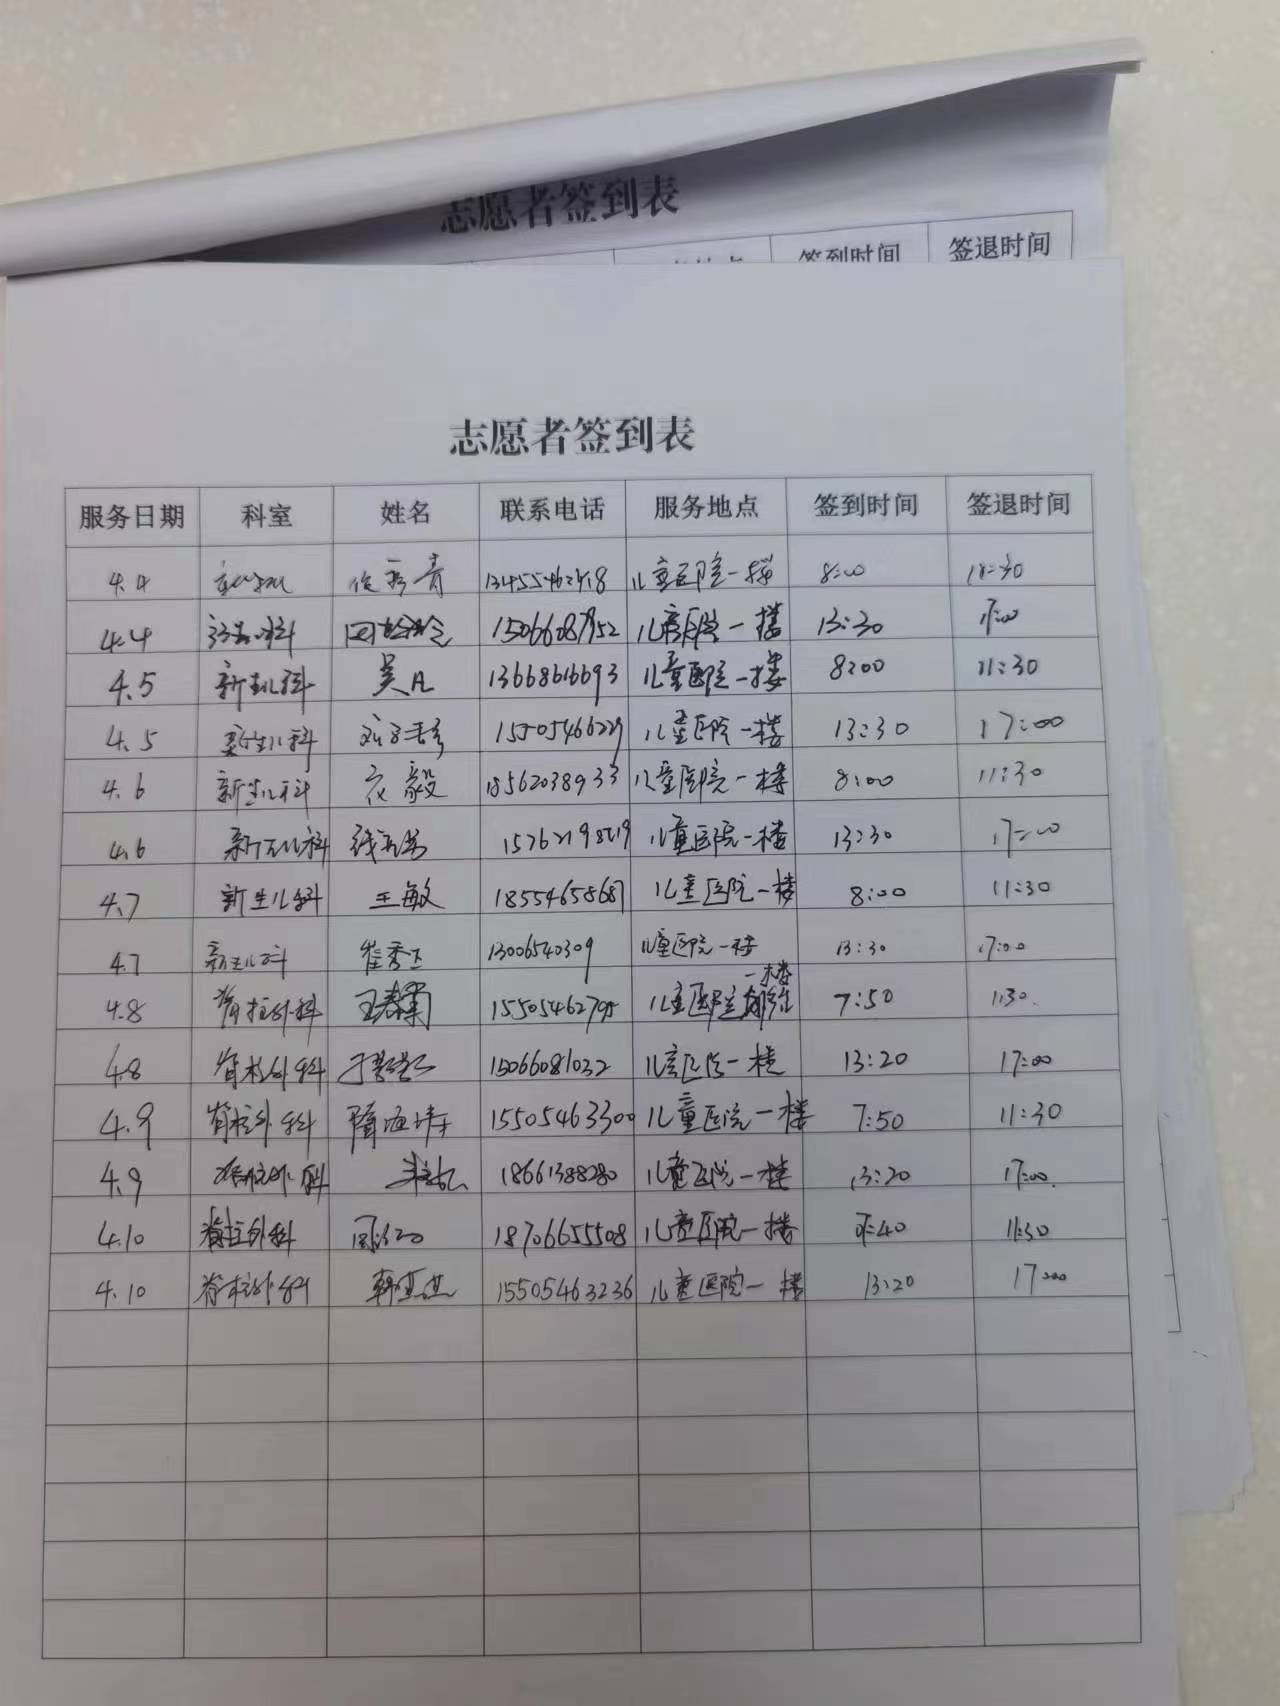 志愿者签到表
签到时间 签退时间
志愿者签到表
服务日期 科室 姓名 联系电话 服务地点 签到时间 签退时间
4.4 青 儿童医院一楼 8:00 11:30
4.4 儿童医院一楼 13:30 17:00
4.5 新生儿科 吴凡 13668616693 儿童医院一楼 8:00 11:30
4.5 新生儿科 15505466229 儿童医院一楼 13:30 17:00
4.6 新生儿科 衣毅 18562038933 儿童医院一楼 8:00 11:30
4.6 新生儿科 儿童医院一楼 13:30 17:00
4.7 新生儿科 王敏 18554658687 儿童医院一楼 8:00 11:30
4.7 新生儿科 崔秀 13006540309 儿童医院一楼 13:30 17:00
4.8 脊柱外科 王春 儿童医院 一楼 7:50 11:30
4.8 脊柱外科 15066081032 儿童医院一楼 13:20 17:00
4.9 脊柱外科 隋海 15505463300 儿童医院一楼 7:50 11:30
4.9 脊柱外科 18661388280 儿童医院一楼 13:20 17:00
4.10 脊柱外科 18706655508 儿童医院一楼 7:40 11:30
4.10 脊柱外科 韩 15505463236 儿童医院一楼 13:20 17:00